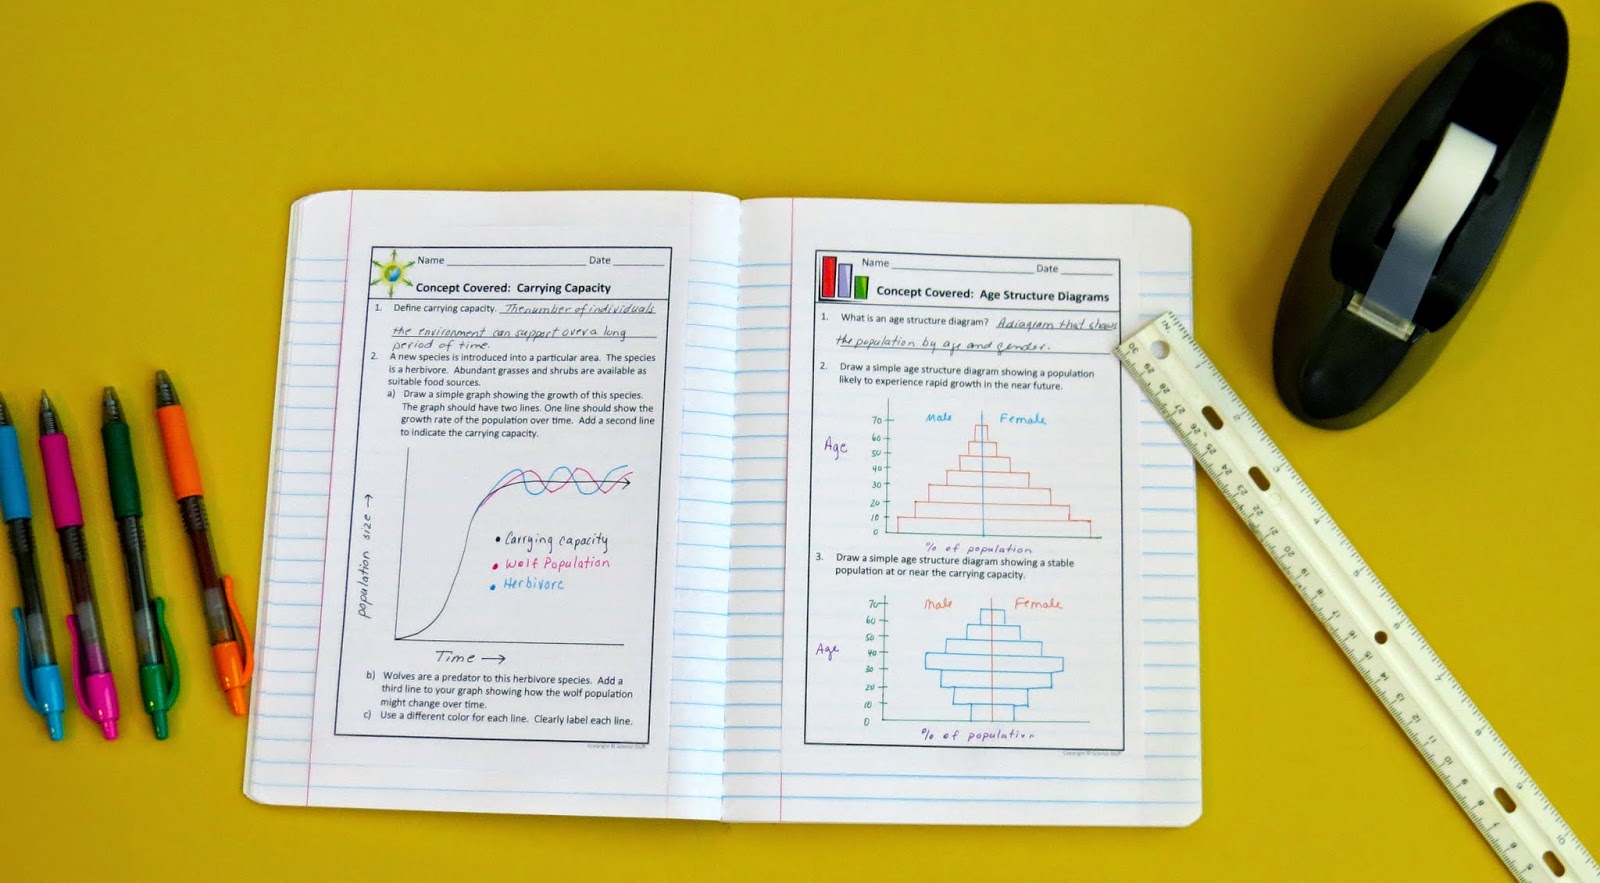 Name ____________ Date ________
Concept Covered: Carrying Capacity
1. Define carrying capacity. The number of individuals
the environment can support over a long
period of time.
2. A new species is introduced into a particular area. The species
is a herbivore. Abundant grasses and shrubs are available as
suitable food sources.
a) Draw a simple graph showing the growth of this species.
The graph should have two lines. One line should show the
growth rate of the population over time. Add a second line
to indicate the carrying capacity.
population size →
• Carrying capacity
• Wolf Population
• Herbivore
Time →
b) Wolves are a predator to this herbivore species. Add a
third line to your graph showing how the wolf population
might change over time.
c) Use a different color for each line. Clearly label each line.
Copyright © Science Stuff
Name ____________ Date ________
Concept Covered: Age Structure Diagrams
1. What is an age structure diagram? A diagram that shows
the population by age and gender.
2. Draw a simple age structure diagram showing a population
likely to experience rapid growth in the near future.
Male Female
Age
70
60
50
40
30
20
10
0
% of population
3. Draw a simple age structure diagram showing a stable
population at or near the carrying capacity.
Male Female
Age
70
60
50
40
30
20
10
0
% of population
Copyright © Science Stuff
IN.
1
2
3
4
5
6
7
30
29
28
27
26
25
24
23
22
21
20
19
18
17
16
15
14
13
12
11
10
9
8
7
6
5
10